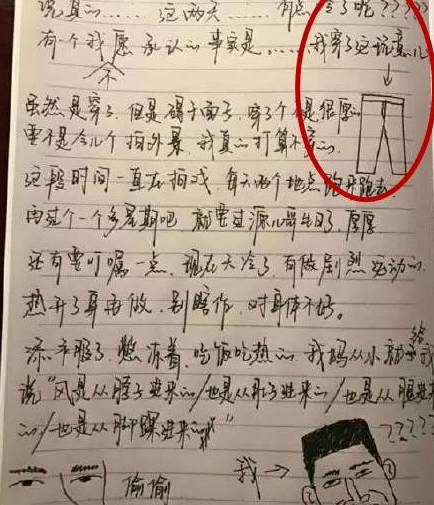 说真的……这两天……有点冷了呢????
有一个我愿承认的事实是……我穿了这玩意儿
不
虽然是穿了,但是碍于面子,穿了个不是很厚的
要不是今儿个拍外景,我真的打算不穿的.
这段时间一直在拍戏,每天两个地点跑来跑去.
再过个一个多星期吧,就要过源儿哥生日了,厚厚
还有要叮嘱一点,现在天冷了,有做剧烈运动的,
热开了身再做,别瞎作,对身体不好。
添衣服了,憋冻着,吃饭吃热的,我妈从小就给我
说"风是从脖子进来的/也是从肚子进来的/也是从腿进来
的/也是从脚踝进来的"
????
偷偷
我→